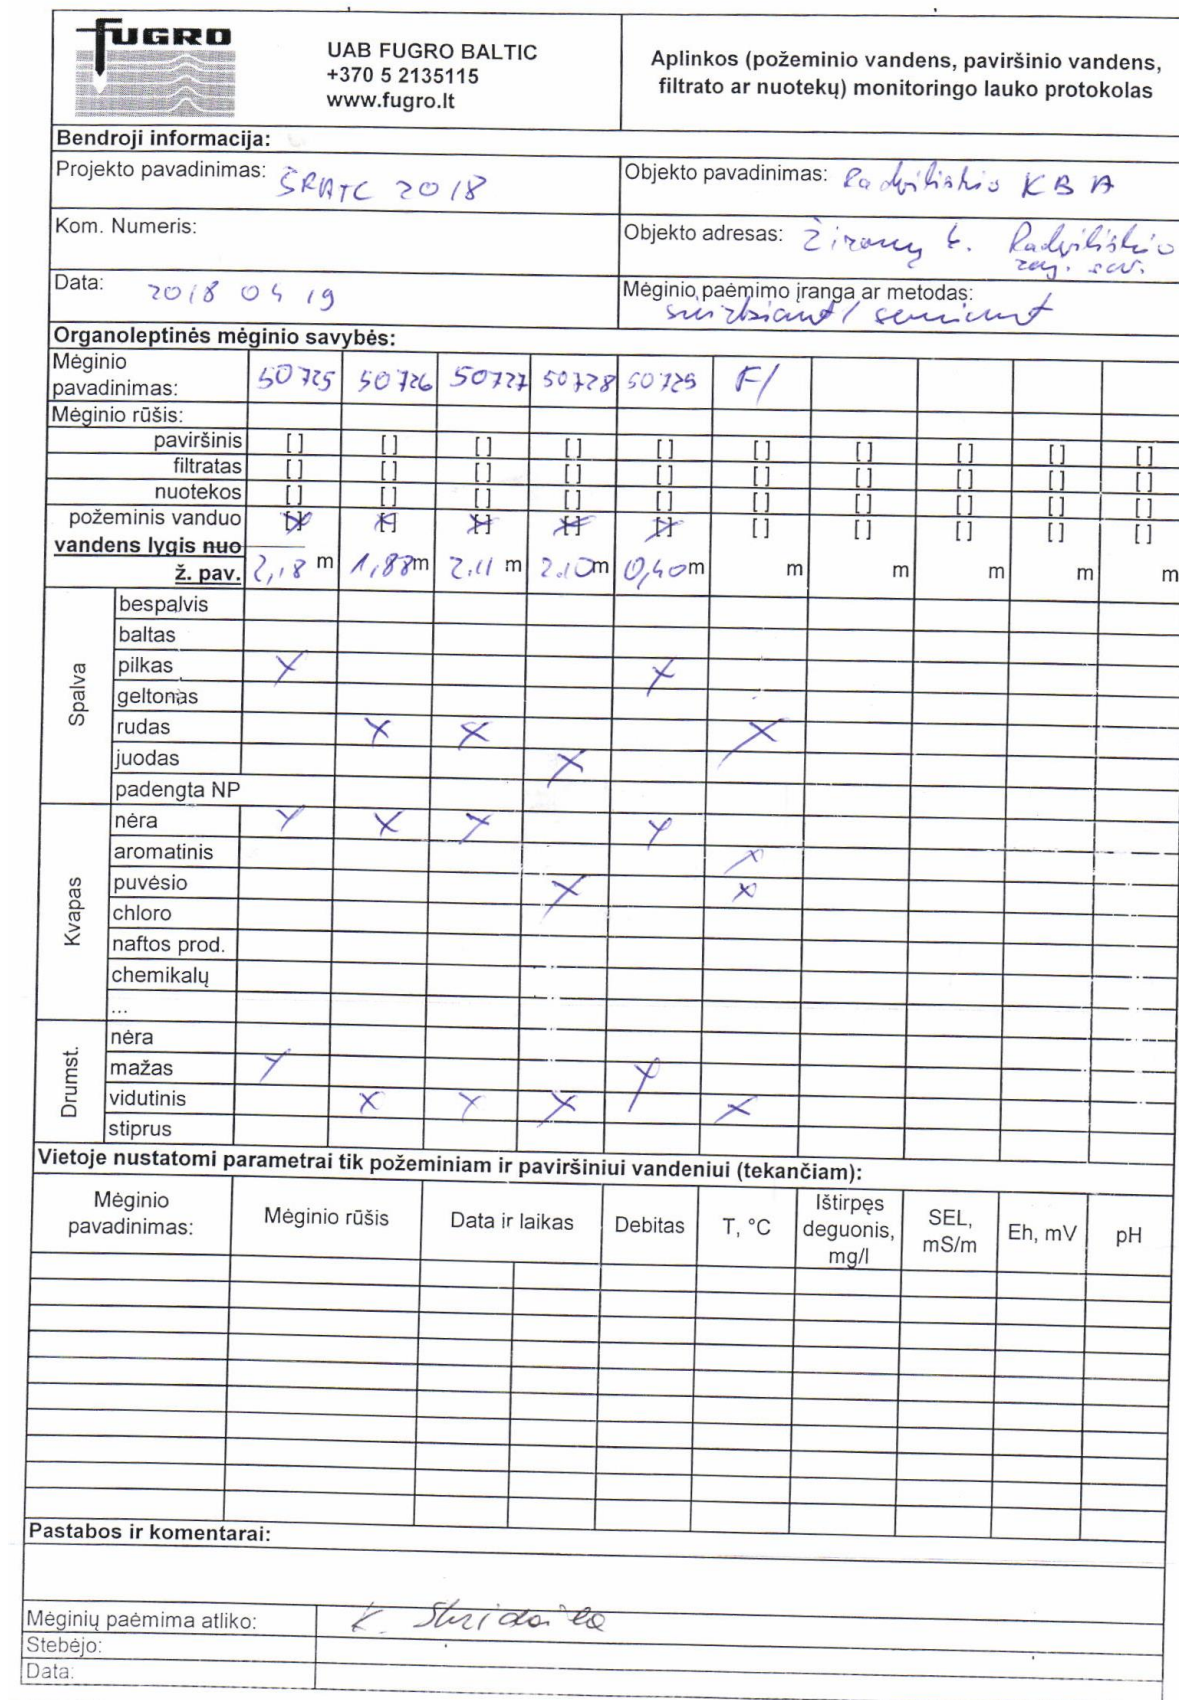 fUGRO
UAB FUGRO BALTIC
+370 5 2135115
www.fugro.lt
Aplinkos (požeminio vandens, paviršinio vandens,
filtrato ar nuotekų) monitoringo lauko protokolas
Bendroji informacija:
Projekto pavadinimas: ŠRATC 2018
Objekto pavadinimas: Radviliškio KBA
Kom. Numeris:
Objekto adresas: k. Radviliškio
raj. sav.
Data: 2018 04 19
Mėginio paėmimo įranga ar metodas:
Organoleptinės mėginio savybės:
Mėginio
pavadinimas: 50725 50726 50727 50728 50729 F1
Mėginio rūšis:
paviršinis [ ] [ ] [ ] [ ] [ ] [ ] [ ] [ ] [ ] [ ]
filtratas [ ] [ ] [ ] [ ] [ ] [ ] [ ] [ ] [ ] [ ]
nuotekos [ ] [ ] [ ] [ ] [ ] [ ] [ ] [ ] [ ] [ ]
požeminis vanduo [X] [X] [X] [X] [X] [ ] [ ] [ ] [ ] [ ]
vandens lygis nuo
ž. pav. 2,18 m 1,88 m 2.11 m 2.10 m 0,40 m m m m m m
Spalva
bespalvis
baltas
pilkas X X
geltonas
rudas X X X
juodas X
padengta NP
Kvapas
nėra X X X X
aromatinis X
puvėsio X X
chloro
naftos prod.
chemikalų
...
Drumst.
nėra
mažas X X
vidutinis X X X X
stiprus
Vietoje nustatomi parametrai tik požeminiam ir paviršiniui vandeniui (tekančiam):
Mėginio
pavadinimas:
Mėginio rūšis
Data ir laikas
Debitas
T, °C
Ištirpęs
deguonis,
mg/l
SEL,
mS/m
Eh, mV
pH
Pastabos ir komentarai:
Mėginių paėmima atliko: K.
Stebėjo:
Data: